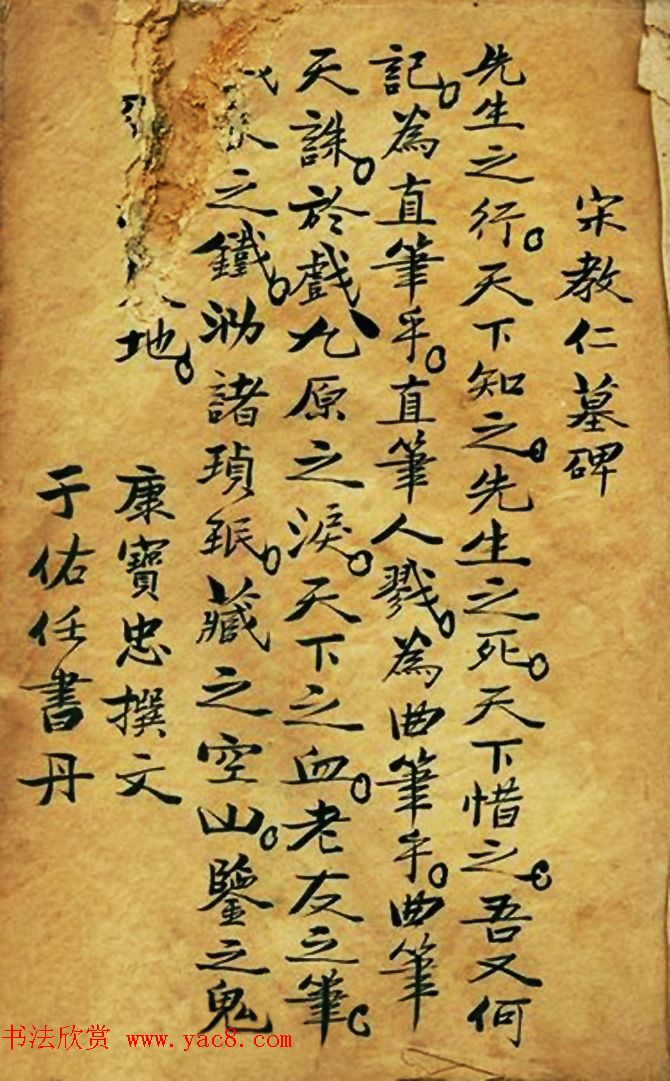 宋教仁墓碑
先生之行。天下知之。先生之死。天下惜之。吾又何
記。為直筆乎。直筆人戮。為曲筆乎。曲筆
天誅。於戲九原之淚。天下之血。老友之筆。
之鐵。泐諸珉。藏之空山。鑒之鬼
地。
康寶忠撰文
于佑任書丹
书法欣赏 www.yac8.com